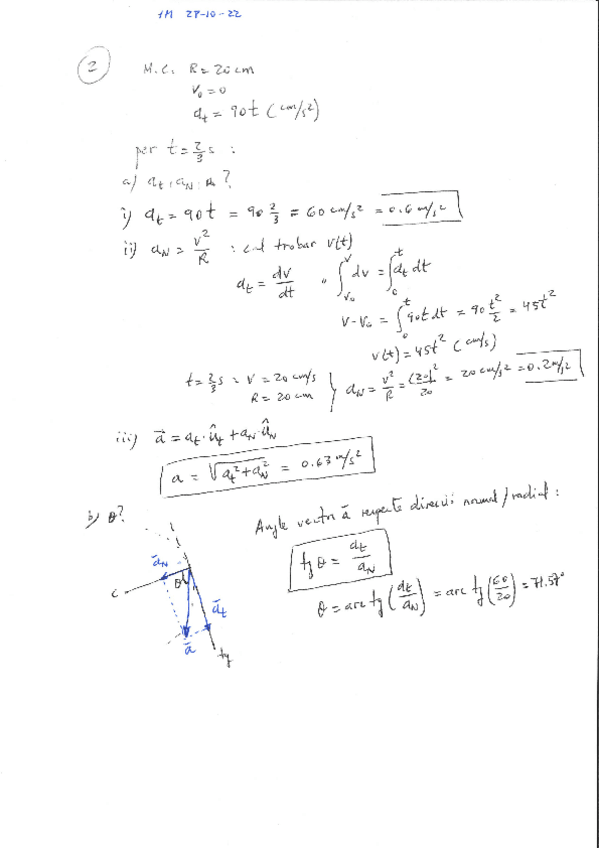 1M 28-10-22
2
M.C. R = 20 cm
v₀ = 0
a_t = 90t (cm/s²)
per t = 2/3 s :
a) a_t, a_N, a ?
i) a_t = 90t = 90 2/3 = 60 cm/s² = 0.6 m/s²
ii) a_N = v²/R : cal trobar v(t)
a_t = dv/dt " ∫_{v₀}^{v} dv = ∫_0^t a_t dt
v - v₀ = ∫_0^t 90t dt = 90 t²/2 = 45t²
v(t) = 45t² (cm/s)
t = 2/3 s : v = 20 cm/s
R = 20 cm } a_N = v²/R = (20)²/20 = 20 cm/s² = 0.2 m/s²
iii) a⃗ = a_t · û_t + a_N û_N
a = √(a_t² + a_N²) = 0.63 m/s²
b) θ? Angle vector ā respecte direcció normal/radial :
tg θ = a_t/a_N
θ = arc tg (a_t/a_N) = arc tg (60/20) = 71.57°
ā_N
C
θ
ā_t
ā
tg